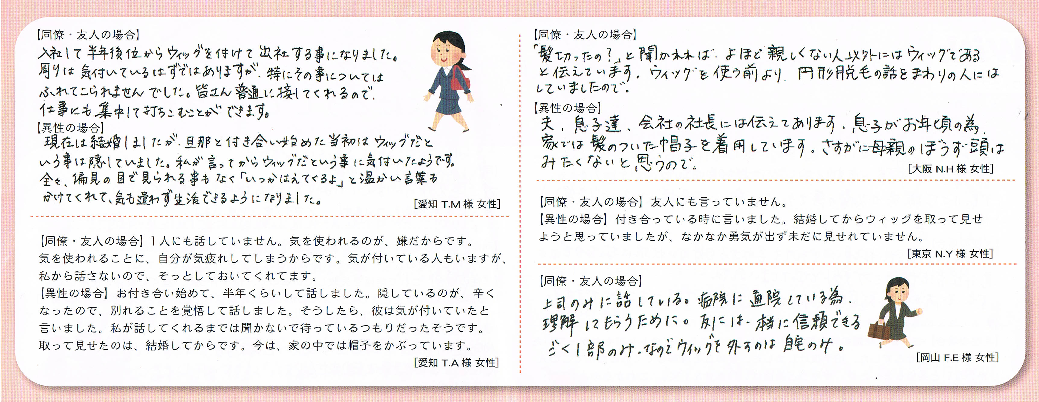 【同僚・友人の場合】
入社して半年後位からウィッグを付けて出社する事になりました。
周りは気付いているはずではありますが、特にその事については
ふれてこられませんでした。皆さん普通に接してくれるので、
仕事にも集中して打ちこむことができます。
【異性の場合】
現在は結婚しましたが、旦那と付き合い始めた当初はウィッグだと
いう事は隠していました。私が言ってからウィッグだという事に気付いたようです。
全く、偏見の目で見られる事もなく「いつかはえてくるよ」と温かい言葉を
かけてくれて、気も遣わず生活できるようになりました。
[愛知 T.M 様 女性]
【同僚・友人の場合】1人にも話していません。気を使われるのが、嫌だからです。
気を使われることに、自分が気疲れしてしまうからです。気が付いている人もいますが、
私から話さないので、そっとしておいてくれてます。
【異性の場合】お付き合い始めて、半年くらいして話しました。隠しているのが、辛く
なったので、別れることを覚悟して話しました。そうしたら、彼は気が付いていたと
言いました。私が話してくれるまでは聞かないで待っているつもりだったそうです。
取って見せたのは、結婚してからです。今は、家の中では帽子をかぶっています。
[愛知 T.A 様 女性]
【同僚・友人の場合】
「髪切ったの?」と聞かれれば、よほど親しくない人以外にはウィッグである
と伝えています。ウィッグを使う前より、円形脱毛の話をまわりの人には
していましたので。
【異性の場合】
夫、息子達、会社の社長には伝えてあります。息子がお年頃の為、
家では髪のついた帽子を着用しています。さすがに母親のぼうず頭は
みたくないと思うので。
[大阪 N.H 様 女性]
【同僚・友人の場合】友人にも言っていません。
【異性の場合】付き合っている時に言いました。結婚してからウィッグを取って見せ
ようと思っていましたが、なかなか勇気が出ず未だに見せれていません。
[東京 N.Y 様 女性]
【同僚・友人の場合】
上司のみに話している。病院に通院している為、
理解してもらうために。友には、特に信頼できる
ごく1部のみ。なのでウィッグを外すのは自宅のみ。
[岡山 F.E 様 女性]